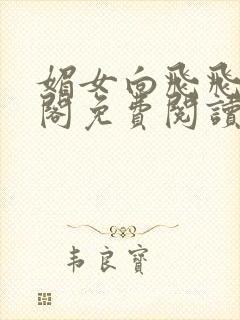 媚女向飛飛
閣免費閱讀
韦良寶